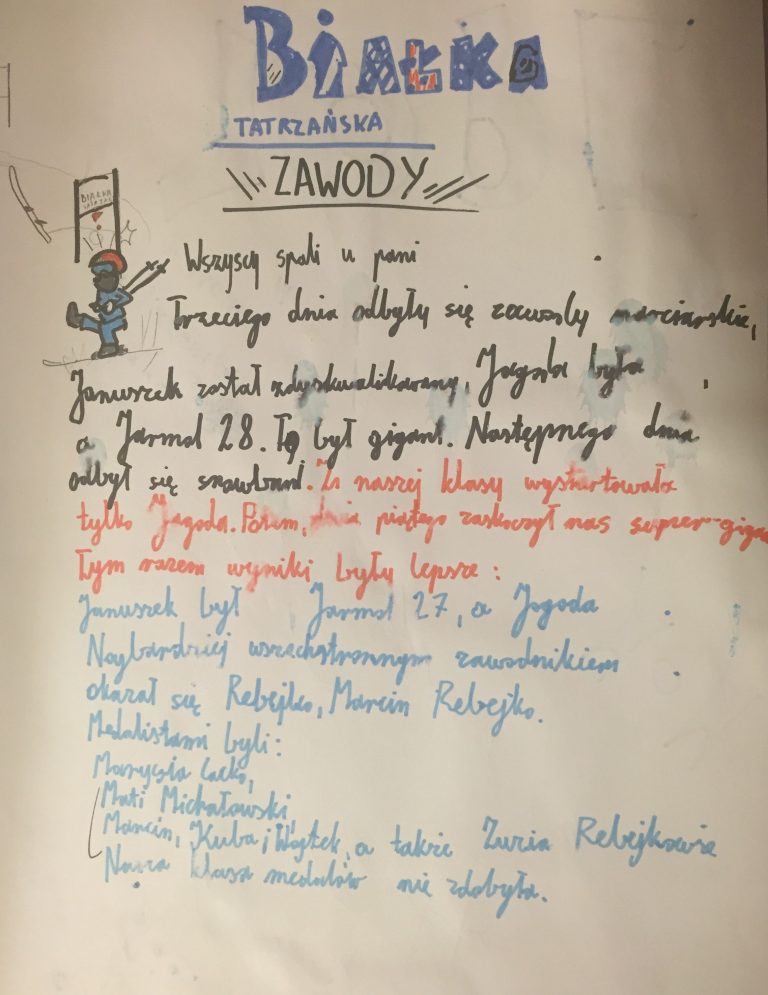 BIAŁKA
TATRZAŃSKA
ZAWODY
BIAŁKA
Wszyscy spali u pani
Trzeciego dnia odbyły się zawody narciarskie,
Januszek został zdyskwalikowany, Jagoda była
a Jarmol 28. To był gigant. Następnego dnia
odbył się snowband. Z naszej klasy wystartowała
tylko Jagoda. Potem, dnia piątego zaskoczył nas super-giga
Tym razem wyniki były lepsze:
Januszek był Jarmol 27, a Jagoda
Najbardziej wszechstronnym zawodnikiem
okazał się Rebejko, Marcin Rebejko.
Medalistami byli:
Marysia Lacko,
Mati Michałowski,
Marcin, Kuba i Wojtek, a także Zuzia Rebejkowie
Nasza klasa medalów nie zdobyła.